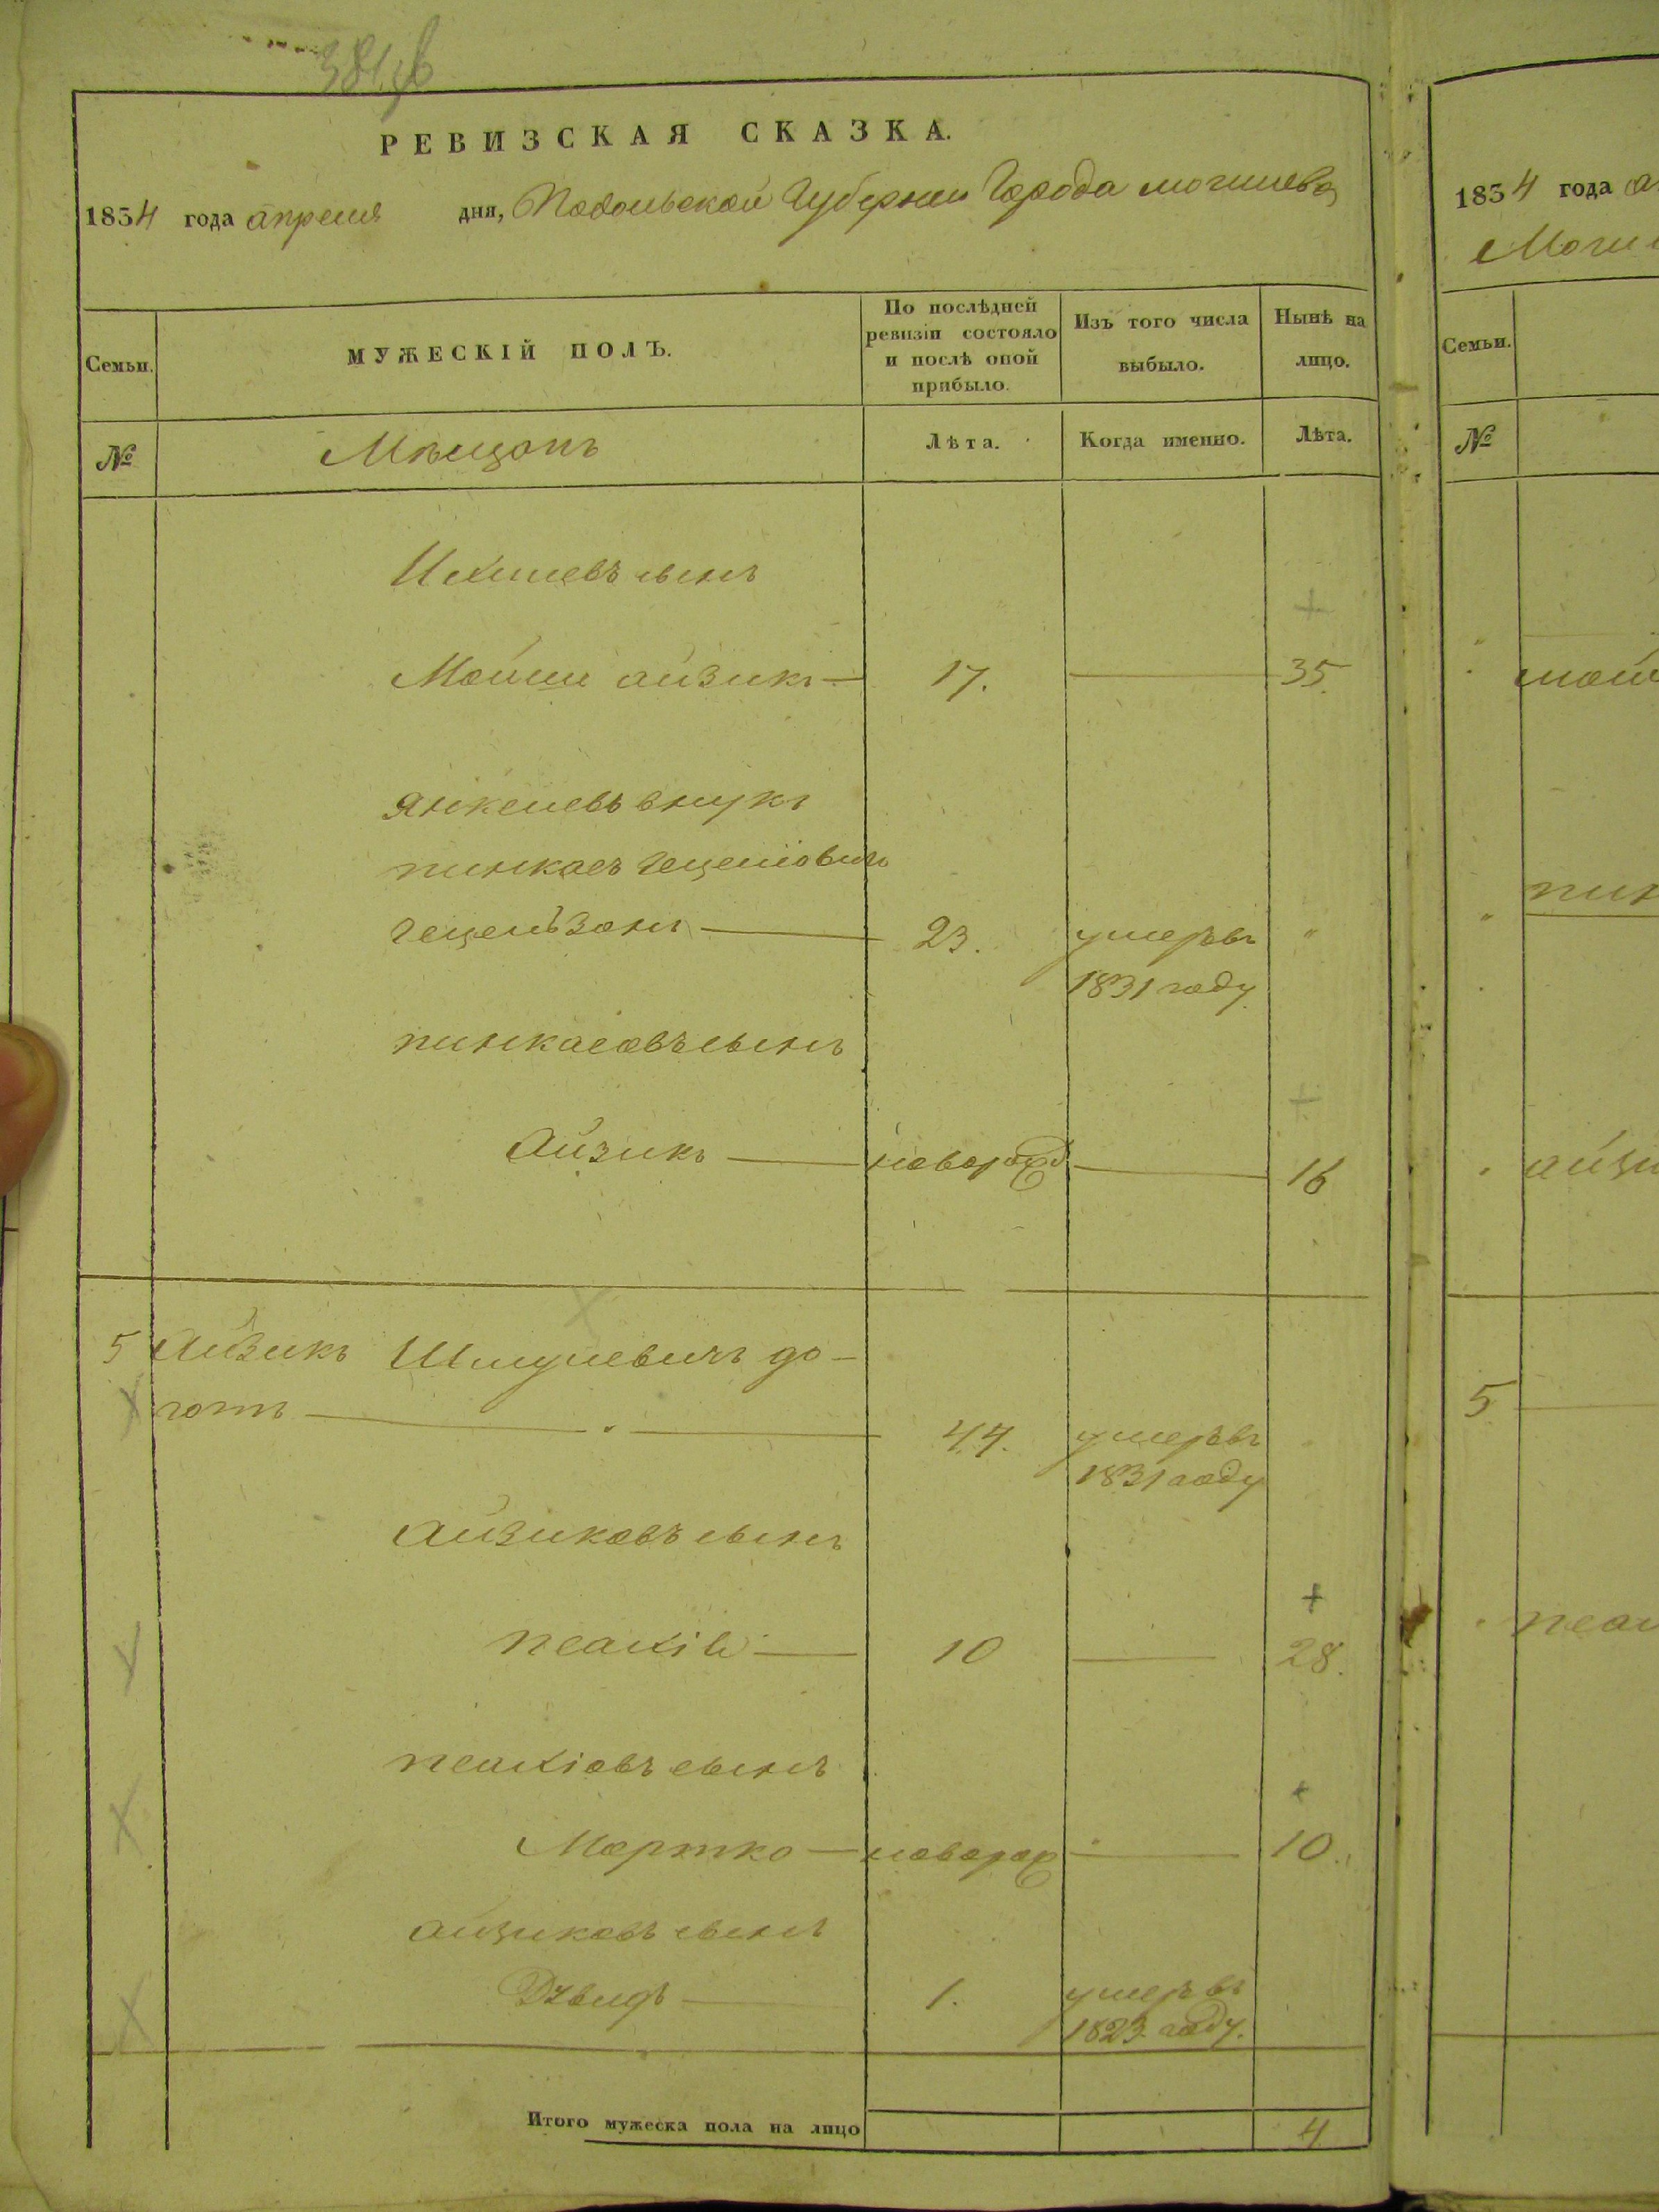 РЕВИЗСКАЯ СКАЗКА.
1834 года апреля дня, Подольской Губернии Города могилева
Семьи.
МУЖЕСКІЙ ПОЛЪ.
По послѣдней ревизіи состояло и послѣ оной прибыло.
Изъ того числа выбыло.
Нынѣ на лицо.
№
Мѣщанъ
Лѣта.
Когда именно.
Лѣта.
сынъ
Мошко айзикъ — 17. — 35.
Янкелевъ внукъ
пинкасъ Гецелiовичъ
Гецельзонъ — 23. умеръ въ "
1831 году.
пинкасовъ сынъ
Айзикъ — новорожд — 16
5 Айзикъ Шмулевичъ до-
готъ — 44. умеръ въ
1831 году
Айзиковъ сынъ
10 — 28.
сынъ
Мортко — новорож — 10.
айзиковъ сынъ
Давидъ — 1. умеръ въ
1823 году.
Итого мужеска пола на лицо 4
1834 года
№
Семьи.
5